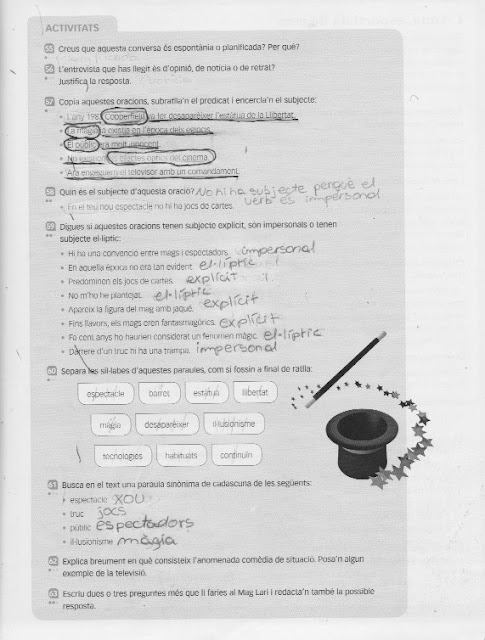 ACTIVITATS
55 Creus que aquesta conversa és espontània o planificada? Per què?
56 L'entrevista que has llegit és d'opinió, de notícia o de retrat?
Justifica la resposta.
57 Copia aquestes oracions, subratlla'n el predicat i encercla'n el subjecte:
• L'any 198 Copperfield va fer desaparèixer l'estàtua de la Llibertat.
• La màgia ja existia en l'època dels egipcis.
• El públic era molt innocent.
• No existien els efectes òptics del cinema.
• Ara engeguen el televisor amb un comandament.
58 Quin és el subjecte d'aquesta oració? No hi ha subjecte perquè el
verb és impersonal
• En el teu nou espectacle no hi ha jocs de cartes.
59 Digues si aquestes oracions tenen subjecte explícit, són impersonals o tenen
subjecte el·líptic:
• Hi ha una convenció entre mags i espectadors. impersonal
• En aquella època no era tan evident. el·líptic
• Predominen els jocs de cartes. explícit
• No m'ho he plantejat. el·líptic
• Apareix la figura del mag amb jaqué. explícit
• Fins llavors, els mags eren fantasmagòrics. explícit
• Fa cent anys ho haurien considerat un fenomen màgic. el·líptic
• Darrere d'un truc hi ha una trampa. impersonal
60 Separa les síl·labes d'aquestes paraules, com si fossin a final de ratlla:
espectacle barret estàtua llibertat
màgia desaparèixer il·lusionisme
tecnologies habituats continuïn
61 Busca en el text una paraula sinònima de cadascuna de les següents:
• espectacle xou
• truc jocs
• públic espectadors
• il·lusionisme màgia
62 Explica breument en què consisteix l'anomenada comèdia de situació. Posa'n algun
exemple de la televisió.
63 Escriu dues o tres preguntes més que li faries al Mag Lari i redacta'n també la possible
resposta.